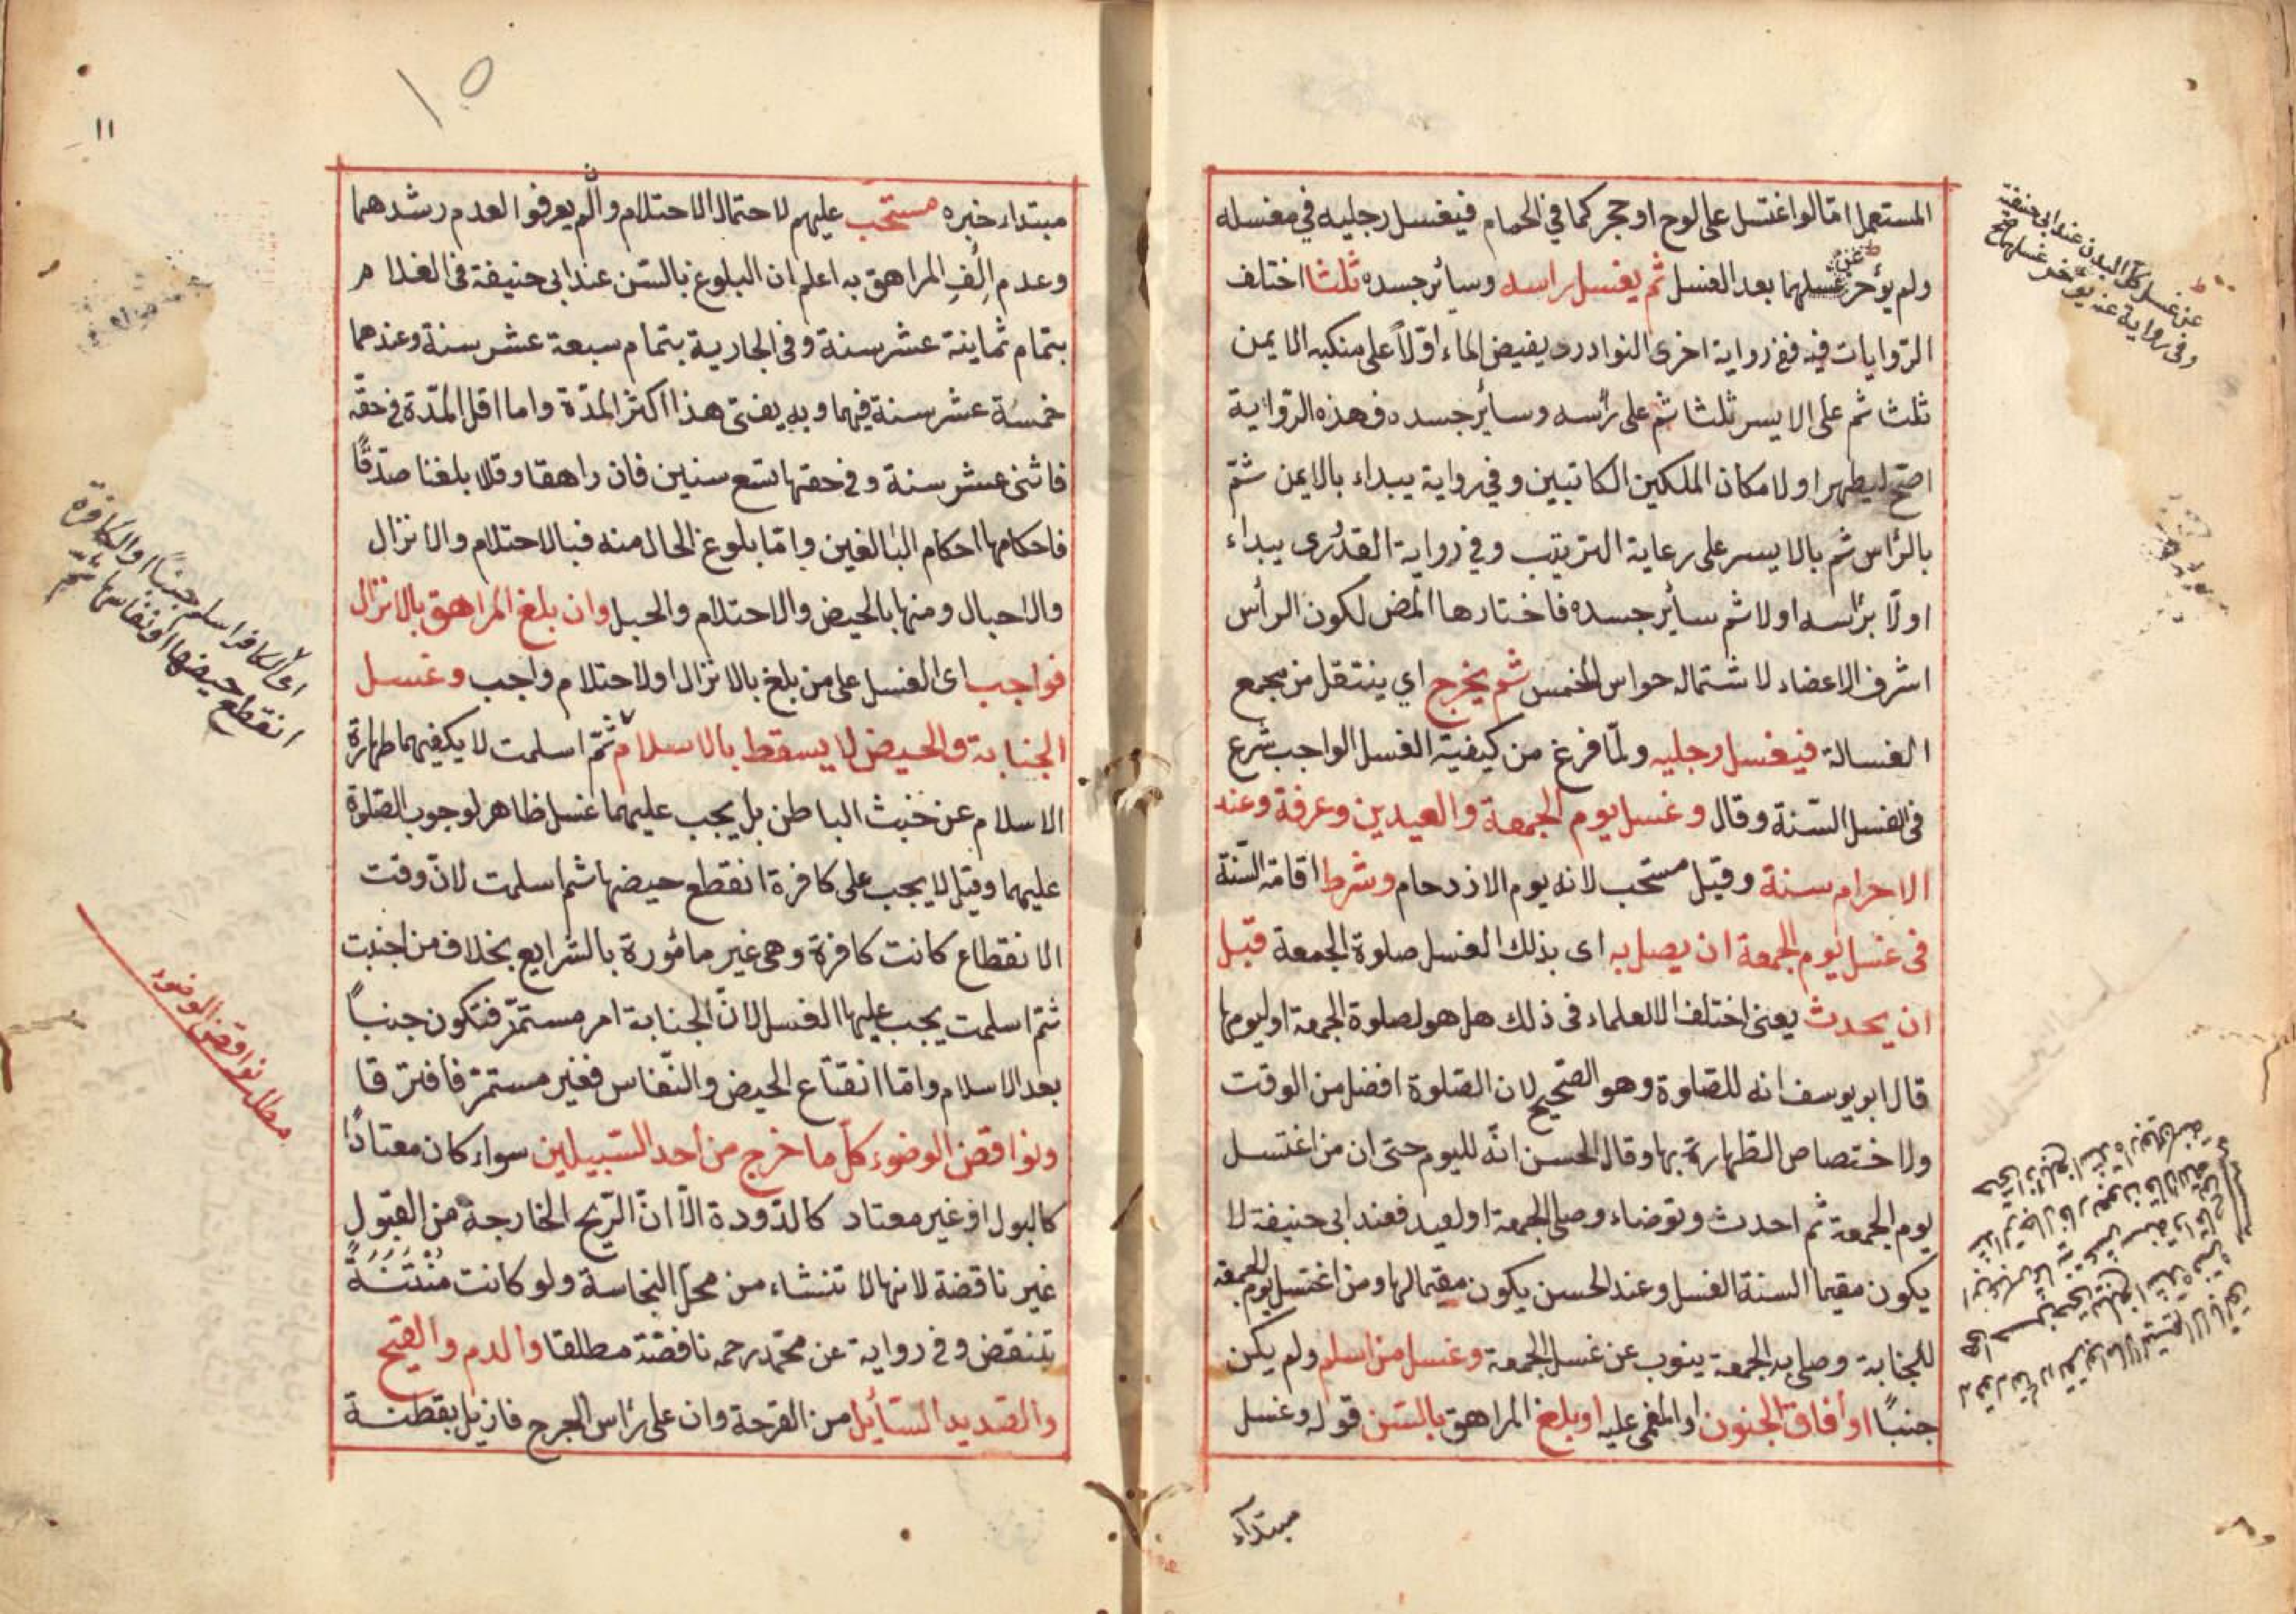 المستعمل امّا لو اغتسل على لوح او حجر كما فى الحمام فيغسل رجليه فى مغسله
ولم يؤخر عن غسلهما بعد الغسل ثم يغسل راسه وسائر جسده ثلثا اختلف
الرّوايات فيه ففى رواية اخرى النوادر يفيض الماء اوّلاً على منكبه الايمن
ثلثا ثم على الايسر ثلثا ثم على رأسه وسائر جسده فهذه الرّواية
اصح ليطهر اولا مكان الملكين الكاتبين وفى رواية يبداء بالايمن ثمّ
بالرّاس ثم بالايسر على رعاية الترتيب وفى رواية القدُرى يبداء
اولّا برأسه اولا ثم سائر جسده فاختارها المض لكون الرأس
اشرف الاعضاء لاشتماله حواس الخمس ثم يخرج اي ينتقل من مجمع
الغسالة فيغسل رجليه ولمّا فرغ من كيفية الغسل الواجب شرع
فى الغسل السنة وقال وغسل يوم الجمعة والعيدين وعرفة وعند
الاحرام سنة وقيل مستحب لانه يوم الازدحام وشرط اقامة السّنّة
فى غسل يوم الجمعة ان يصل به اى بذلك الغسل صلوة الجمعة قبل
ان يحدث يعنى اختلف الالعلماء فى ذلك هل هو لصلوة الجمعة او ليومها
قال ابو يوسف انه للصّلوة وهو الصّحيح لان الصّلوة افضل من الوقت
ولاختصاص الطّهارة بها وقال الحسن انّه لليوم حتى ان من اغتسل
يوم الجمعة ثم احدث وتوضاء وصلى الجمعة او لعيد فعند ابى حنيفة لا
يكون مقيما السنة الغسل وعند الحسن يكون مقيما لها ومن اغتسل يوم الجمعة
للجنابة وصلى به الجمعة ينوب عن غسل الجمعة وغسل من اسلم ولم يكن
جنباً او أفاق الجنون او المغمى عليه او بلغ المراهق بالسّن قوله وغسل
مبتدآء
عن غسل كل البدن عند ابى حنيفة
وفى رواية عنه يؤخر غسلهما
١٥
١١
مبتداء خبره مستحب عليهم لاحتمال الاحتلام والّم يعرفوا لعدم رشدهما
وعدم اِلْفِ المراهق به اعلم ان البلوغ بالسّن عند ابى حنيفة فى الغلام
بتمام ثماينة عشر سنة وفى الجارية بتمام سبعة عشر سنة وعندهما
خمسة عشر سنة فيهما وبه يفتى هذا اكثر المدّة واما اقل المدّة فى حقّه
فاثنى عشر سنة وفى حقها تسع سنين فان راهقا وقالا بلغنا صدّقاً
فاحكامها احكام البالغين وامّا بلوغ الحال منه فبالاحتلام والانزال
والاحبال ومنها بالحيض والاحتلام والحبل وان بلغ المراهق بالانزال
فواجب اى الغسل على من بلغ بالانزال او لاحتلام واجب وغسل
الجنابة والحيض لا يسقط بالاسلام ثمّ اسلمت لا يكفيهما طهارة
الاسلام عن خبث الباطن بل يجب عليهما غسل ظاهر لوجوب الصّلوة
عليهما وقيل لا يجب على كافرة انقطع حيضها ثم اسلمت لانّ وقت
الانقطاع كانت كافرة وهى غير مامورة بالشّرايع بخلاف من اجنبت
ثمّ اسلمت يجب عليها الغسل لانّ الجنابة امر مستمرّ فتكون جنباً
بعد الاسلام وامّا انقتاع الحيض والنّفاس فغير مستمرّ فافترقا
ونواقض الوضوء كلّ ما خرج من أحد السّبيلين سواء كان معتاداً
كالبول او غير معتاد كالدّودة الّا انّ الرّيح الخارجة من القبول
غير ناقضة لانها لا تنشاء من محل النجاسة ولو كانت منتنةً
تنقض وفى رواية عن محمّد رحمه ناقضة مطلقا والدم والقيح
والصّديد السّائل من القرحة وان على رأس الجرح فازيل بقطنة
اى الكافر اسلم جنباً او الكافرة
انقطع حيضها او نفاسها ثم
مطلب نواقض الوضوء